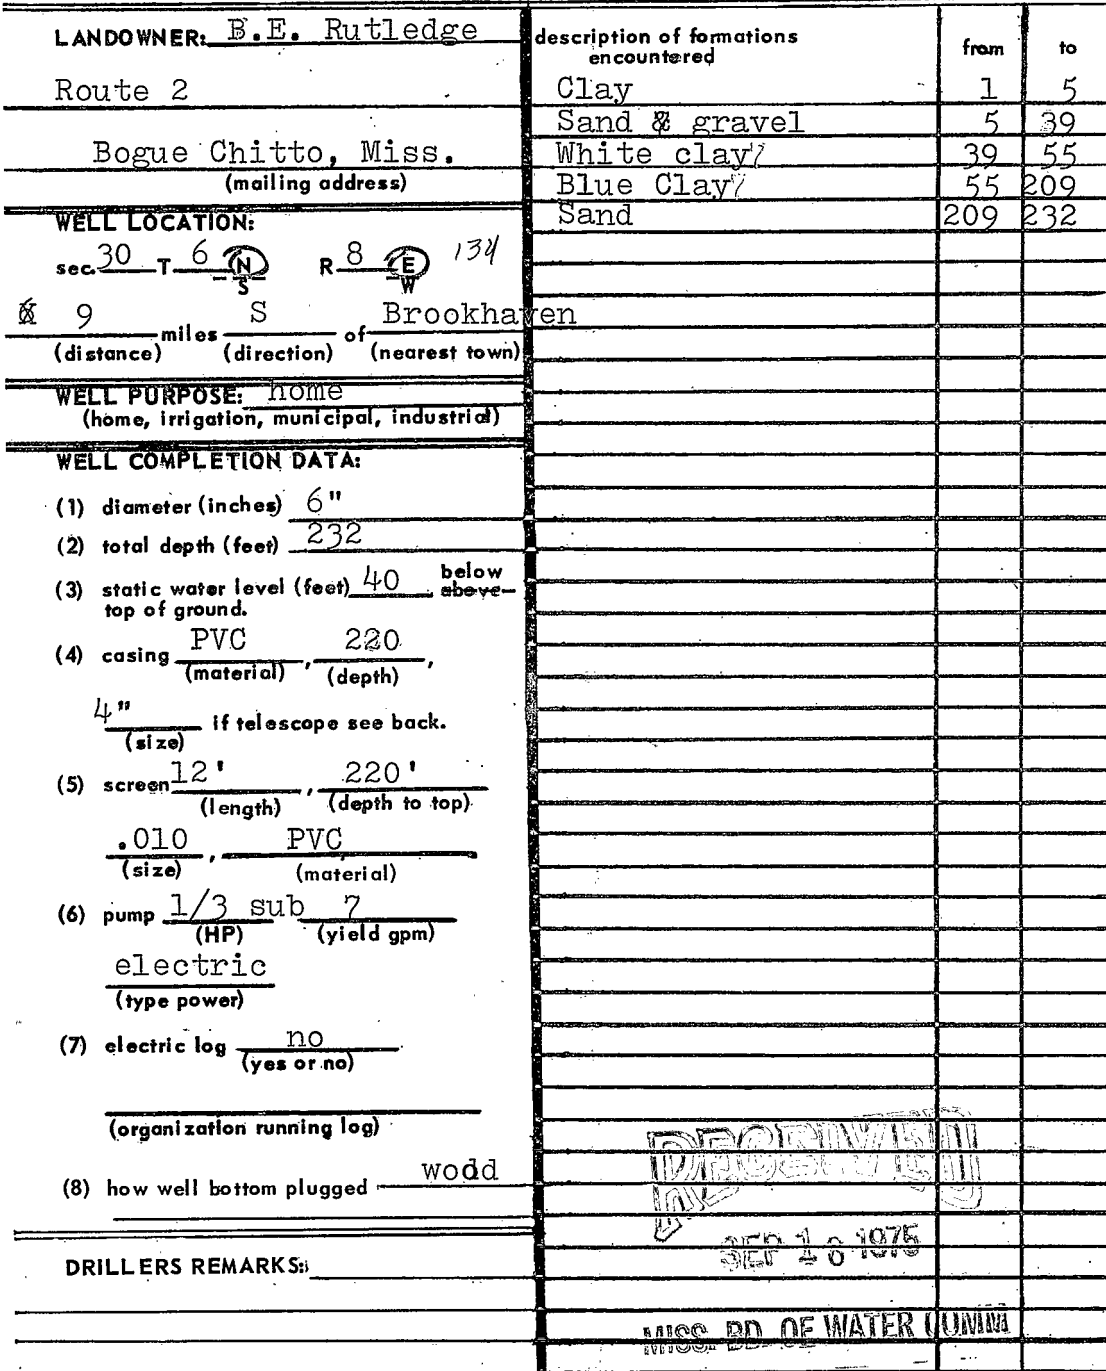 LANDOWNER: B.E. Rutledge
Route 2
Bogue Chitto, Miss.
(mailing address)
WELL LOCATION:
sec. 30 T 6 N R 8 E 134
S W
9 miles S of Brookhaven
(distance) (direction) (nearest town)
WELL PURPOSE: home
(home, irrigation, municipal, industrial)
WELL COMPLETION DATA:
(1) diameter (inches) 6"
(2) total depth (feet) 232
(3) static water level (feet) 40 below above
top of ground.
(4) casing PVC, 220,
(material) (depth)
4" if telescope see back.
(size)
(5) screen 12', 220'
(length) (depth to top)
.010, PVC
(size) (material)
(6) pump 1/3 sub 7
(HP) (yield gpm)
electric
(type power)
(7) electric log no
(yes or no)
(organization running log)
(8) how well bottom plugged wodd
DRILLERS REMARKS:
description of formations encountered from to
Clay 1 5
Sand & gravel 5 39
White clay 39 55
Blue Clay 55 209
Sand 209 232
RECEIVED
SEP 16 1975
MISS. BD. OF WATER COMM